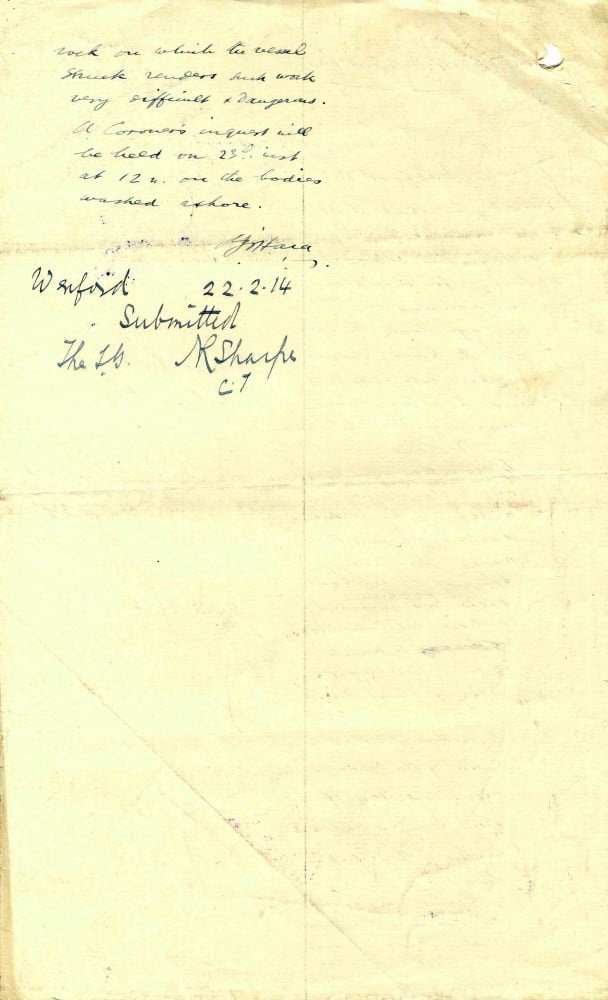 rock on which the vessel
struck renders such work
very difficult & dangerous.
A Coroner's inquest will
be held on 23rd inst
at 12 n. on the bodies
washed ashore.
Wexford 22.2.14
Submitted
The I.G. Sharpe
C.I